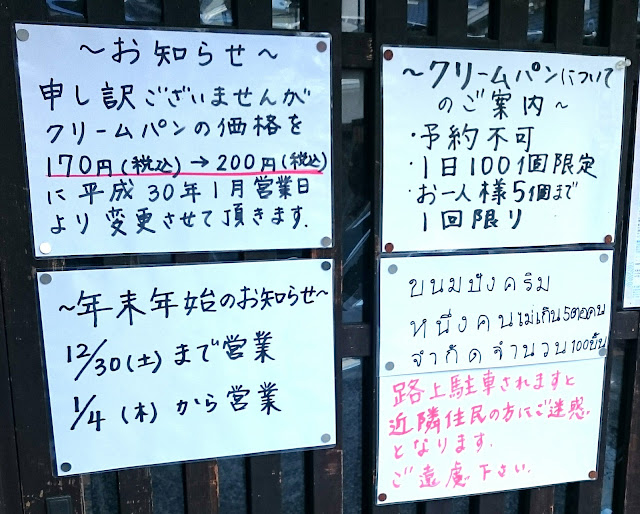 ～お知らせ～
申し訳ございませんが
クリームパンの価格を
170円(税込)→200円(税込)
に平成30年1月営業日
より変更させて頂きます.
～年末年始のお知らせ～
12/30(土)まで営業
1/4(木)から営業
～クリームパンについて
のご案内～
・予約不可
・1日100個限定
・お一人様5個まで
1回限り
ขนมปังครีม
หนึ่งคนไม่เกิน5ต่อคน
จำกัดจำนวน100ชิ้น
路上駐車されますと
近隣住民の方にご迷惑
となります.
ご遠慮下さい.